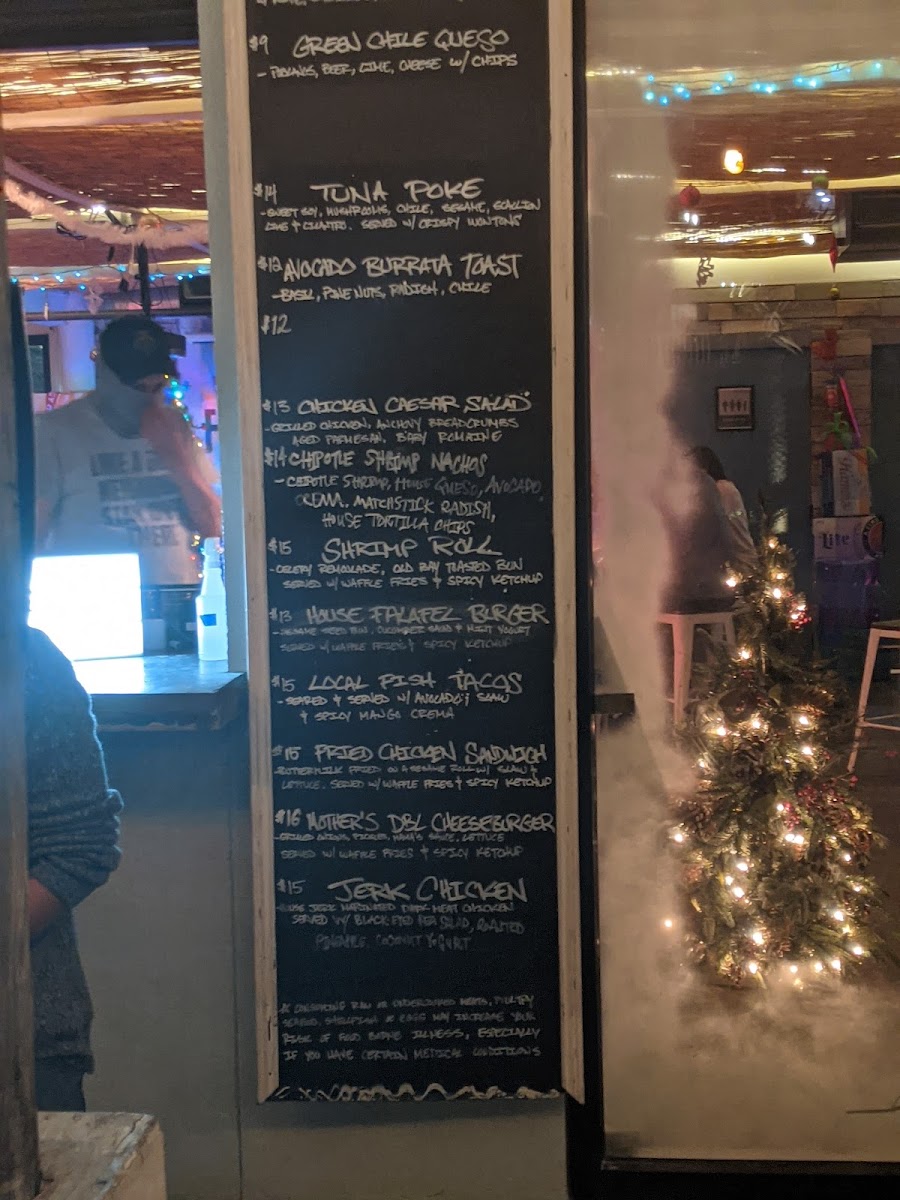 $9 GREEN CHILE QUESO
- POBLANOS, BEER, LIME, CHEESE W/ CHIPS
$14 TUNA POKE
- SWEET SOY, MUSHROOMS, CHILE, SESAME, SCALLION
LIME & CILANTRO. SERVED W/ CRISPY WONTONS
$12 AVOCADO BURRATA TOAST
- BASIL, PINE NUTS, RADISH, CHILE
$12
$13 CHICKEN CAESAR SALAD
- GRILLED CHICKEN, ANCHOVY BREADCRUMBS
AGED PARMESAN, BABY ROMAINE
$14 CHIPOTLE SHRIMP NACHOS
- CHIPOTLE SHRIMP, HOUSE QUESO, AVOCADO
CREMA, MATCHSTICK RADISH,
HOUSE TORTILLA CHIPS
$15 SHRIMP ROLL
- CELERY REMOULADE, OLD BAY TOASTED BUN
SERVED W/ WAFFLE FRIES & SPICY KETCHUP
$13 HOUSE FALAFEL BURGER
- SESAME SEED BUN, CUCUMBER SALAD & MINT YOGURT
SERVED W/ WAFFLE FRIES & SPICY KETCHUP
$15 LOCAL FISH TACOS
- SEARED & SERVED W/ AVOCADO, SLAW
& SPICY MANGO CREMA
$15 FRIED CHICKEN SANDWICH
BUTTERMILK FRIED ON A SESAME ROLL W/ SLAW &
LETTUCE. SERVED W/ WAFFLE FRIES & SPICY KETCHUP
$16 MOTHER'S DBL CHEESEBURGER
- GRILLED ONIONS, PICKLES, MAMA'S SAUCE, LETTUCE
SERVED W/ WAFFLE FRIES & SPICY KETCHUP
$15 JERK CHICKEN
- HOUSE JERK MARINATED DARK MEAT CHICKEN
SERVED W/ BLACK EYED PEA SALAD, ROASTED
PINEAPPLE, COCONUT YOGURT
* CONSUMING RAW OR UNDERCOOKED MEATS, POULTRY
SEAFOOD, SHELLFISH OR EGGS MAY INCREASE YOUR
RISK OF FOOD BORNE ILLNESS, ESPECIALLY
IF YOU HAVE CERTAIN MEDICAL CONDITIONS
Lite